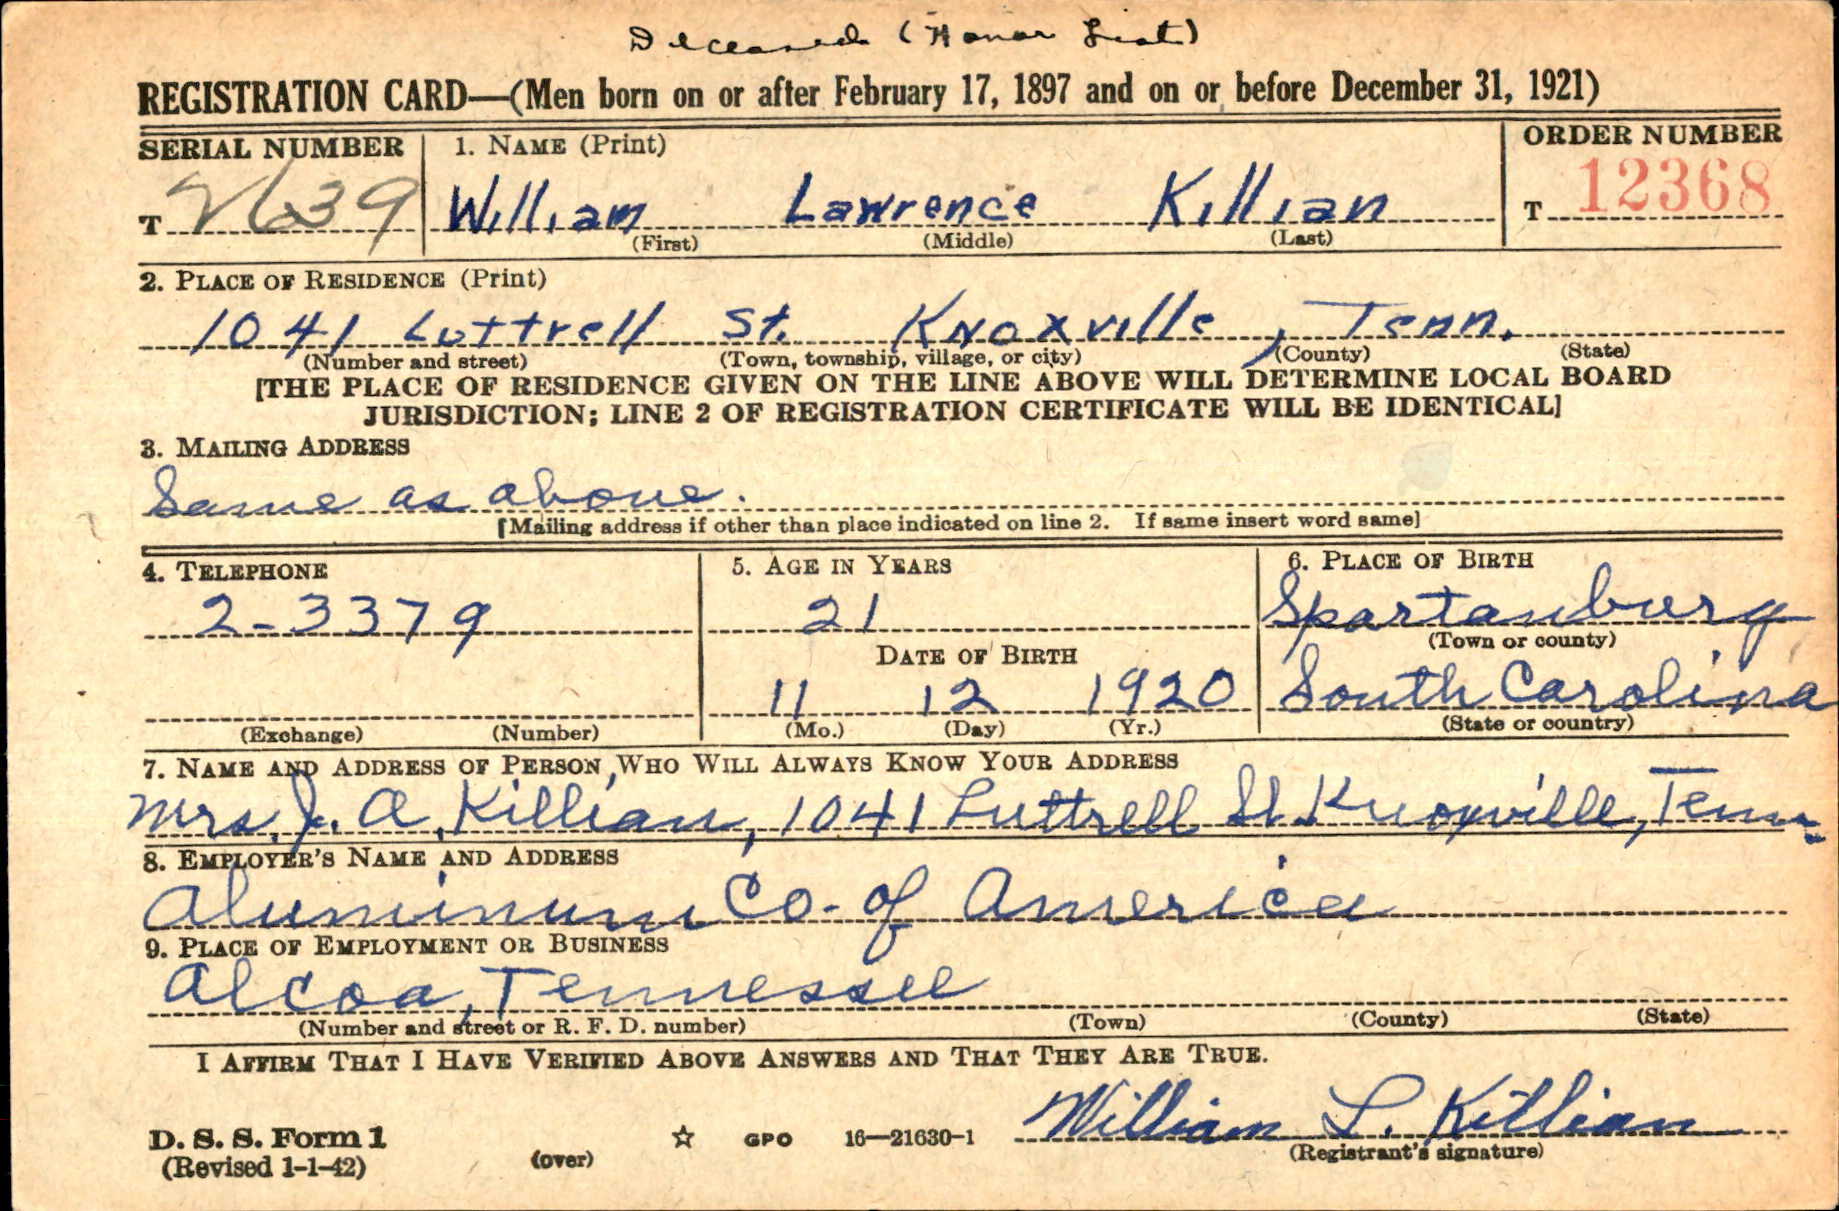 Deceased (Honor List)
REGISTRATION CARD—(Men born on or after February 17, 1897 and on or before December 31, 1921)
SERIAL NUMBER 1. NAME (Print) ORDER NUMBER
T 2639 William Lawrence Killian T 12368
(First) (Middle) (Last)
2. PLACE OF RESIDENCE (Print)
1041 Luttrell St. Knoxville, Tenn.
(Number and street) (Town, township, village, or city) (County) (State)
[THE PLACE OF RESIDENCE GIVEN ON THE LINE ABOVE WILL DETERMINE LOCAL BOARD
JURISDICTION; LINE 2 OF REGISTRATION CERTIFICATE WILL BE IDENTICAL]
3. MAILING ADDRESS
Same as above.
[Mailing address if other than place indicated on line 2. If same insert word same]
4. TELEPHONE 5. AGE IN YEARS 6. PLACE OF BIRTH
2-3379 21 Spartanburg
(Town or county)
DATE OF BIRTH
11 12 1920 South Carolina
(Exchange) (Number) (Mo.) (Day) (Yr.) (State or country)
7. NAME AND ADDRESS OF PERSON WHO WILL ALWAYS KNOW YOUR ADDRESS
Mrs. J. A. Killian, 1041 Luttrell St. Knoxville, Tenn.
8. EMPLOYER'S NAME AND ADDRESS
Aluminum Co. of America
9. PLACE OF EMPLOYMENT OR BUSINESS
Alcoa, Tennessee
(Number and street or R. F. D. number) (Town) (County) (State)
I AFFIRM THAT I HAVE VERIFIED ABOVE ANSWERS AND THAT THEY ARE TRUE.
William L. Killian
D. S. S. Form 1 (over) ☆ GPO 16—21630-1 (Registrant's signature)
(Revised 1-1-42)